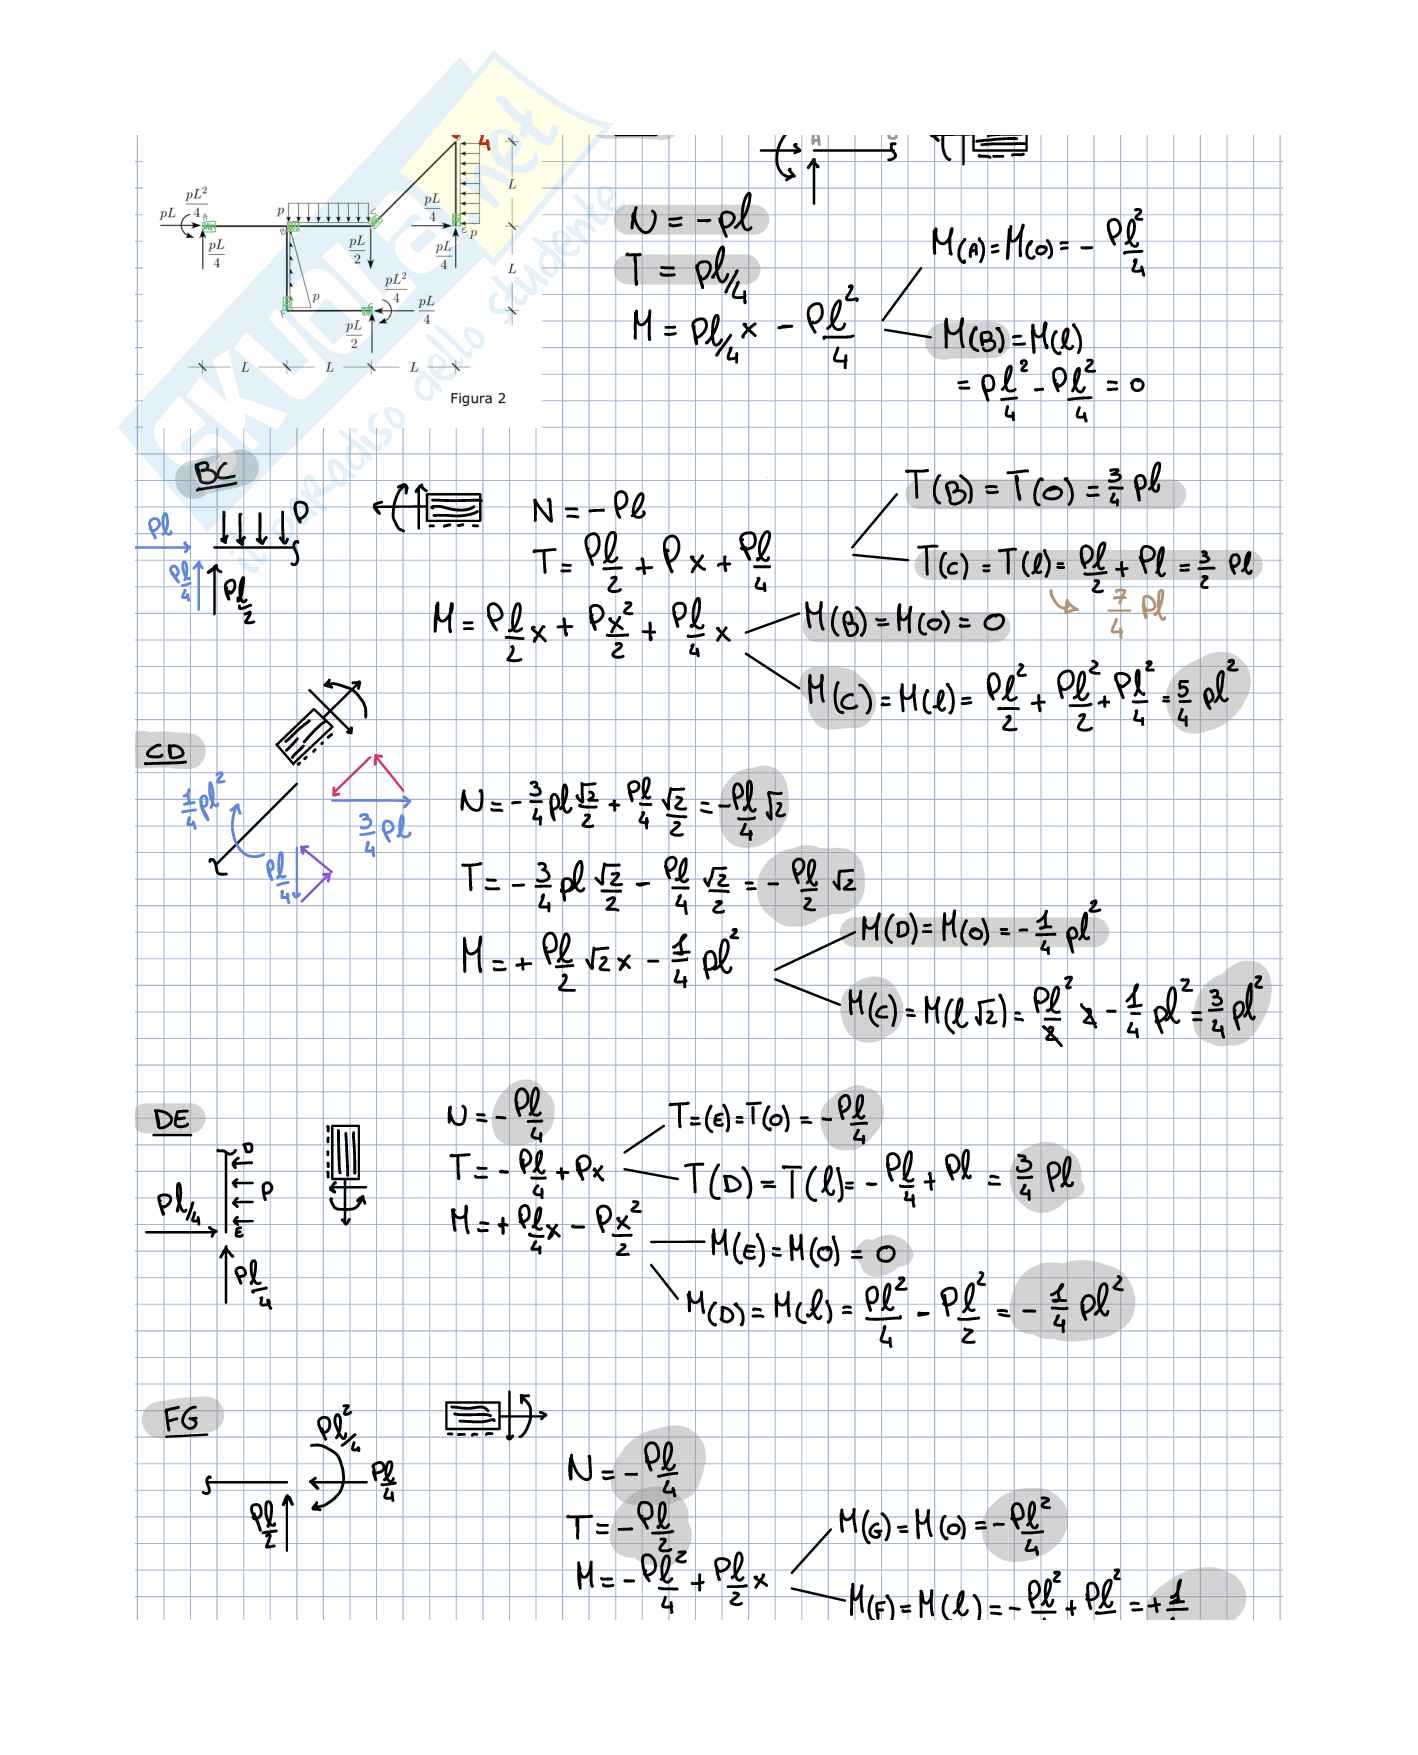 4
pL
pL²/4
pL/4
p
pL/2
pL/4
pL/4
p
L
L
pL²/4
pL/4
p
pL/2
L L L
Figura 2
SKUOLA.net
il paradiso dello studente
A
N = -pl
T = pl/4
M = pl/4 x - pl²/4
M(A) = M(0) = - pl²/4
M(B) = M(l)
= pl²/4 - pl²/4 = 0
BC
P
Pl
Pl/4
Pl/2
N = -Pl
T = Pl/2 + Px + Pl/4
T(B) = T(0) = 3/4 pl
T(C) = T(l) = Pl/2 + Pl = 3/2 Pl
7/4 Pl
M = Pl/2 x + Px²/2 + Pl/4 x
M(B) = M(0) = 0
M(C) = M(l) = Pl²/2 + Pl²/2 + Pl²/4 = 5/4 pl²
CD
1/4 pl²
3/4 Pl
Pl/4
N = -3/4 pl √2/2 + Pl/4 √2/2 = -Pl/4 √2
T = - 3/4 pl √2/2 - Pl/4 √2/2 = - Pl/2 √2
M = + Pl/2 √2 x - 1/4 pl²
M(D) = M(0) = - 1/4 pl²
M(C) = M(l√2) = Pl²/2 2 - 1/4 pl² = 3/4 pl²
DE
D
P
E
Pl/4
Pl/4
N = - Pl/4
T = - Pl/4 + Px
T=(E)=T(0) = - Pl/4
T(D) = T(l) = - Pl/4 + Pl = 3/4 Pl
M = + Pl/4 x - Px²/2
M(E) = M(0) = 0
M(D) = M(l) = Pl²/4 - Pl²/2 = - 1/4 Pl²
FG
Pl²/4
Pl/4
Pl/2
N = - Pl/4
T = - Pl/2
M = - Pl²/4 + Pl/2 x
M(G) = M(0) = - Pl²/4
M(F) = M(l) = - Pl² + Pl² = + 1